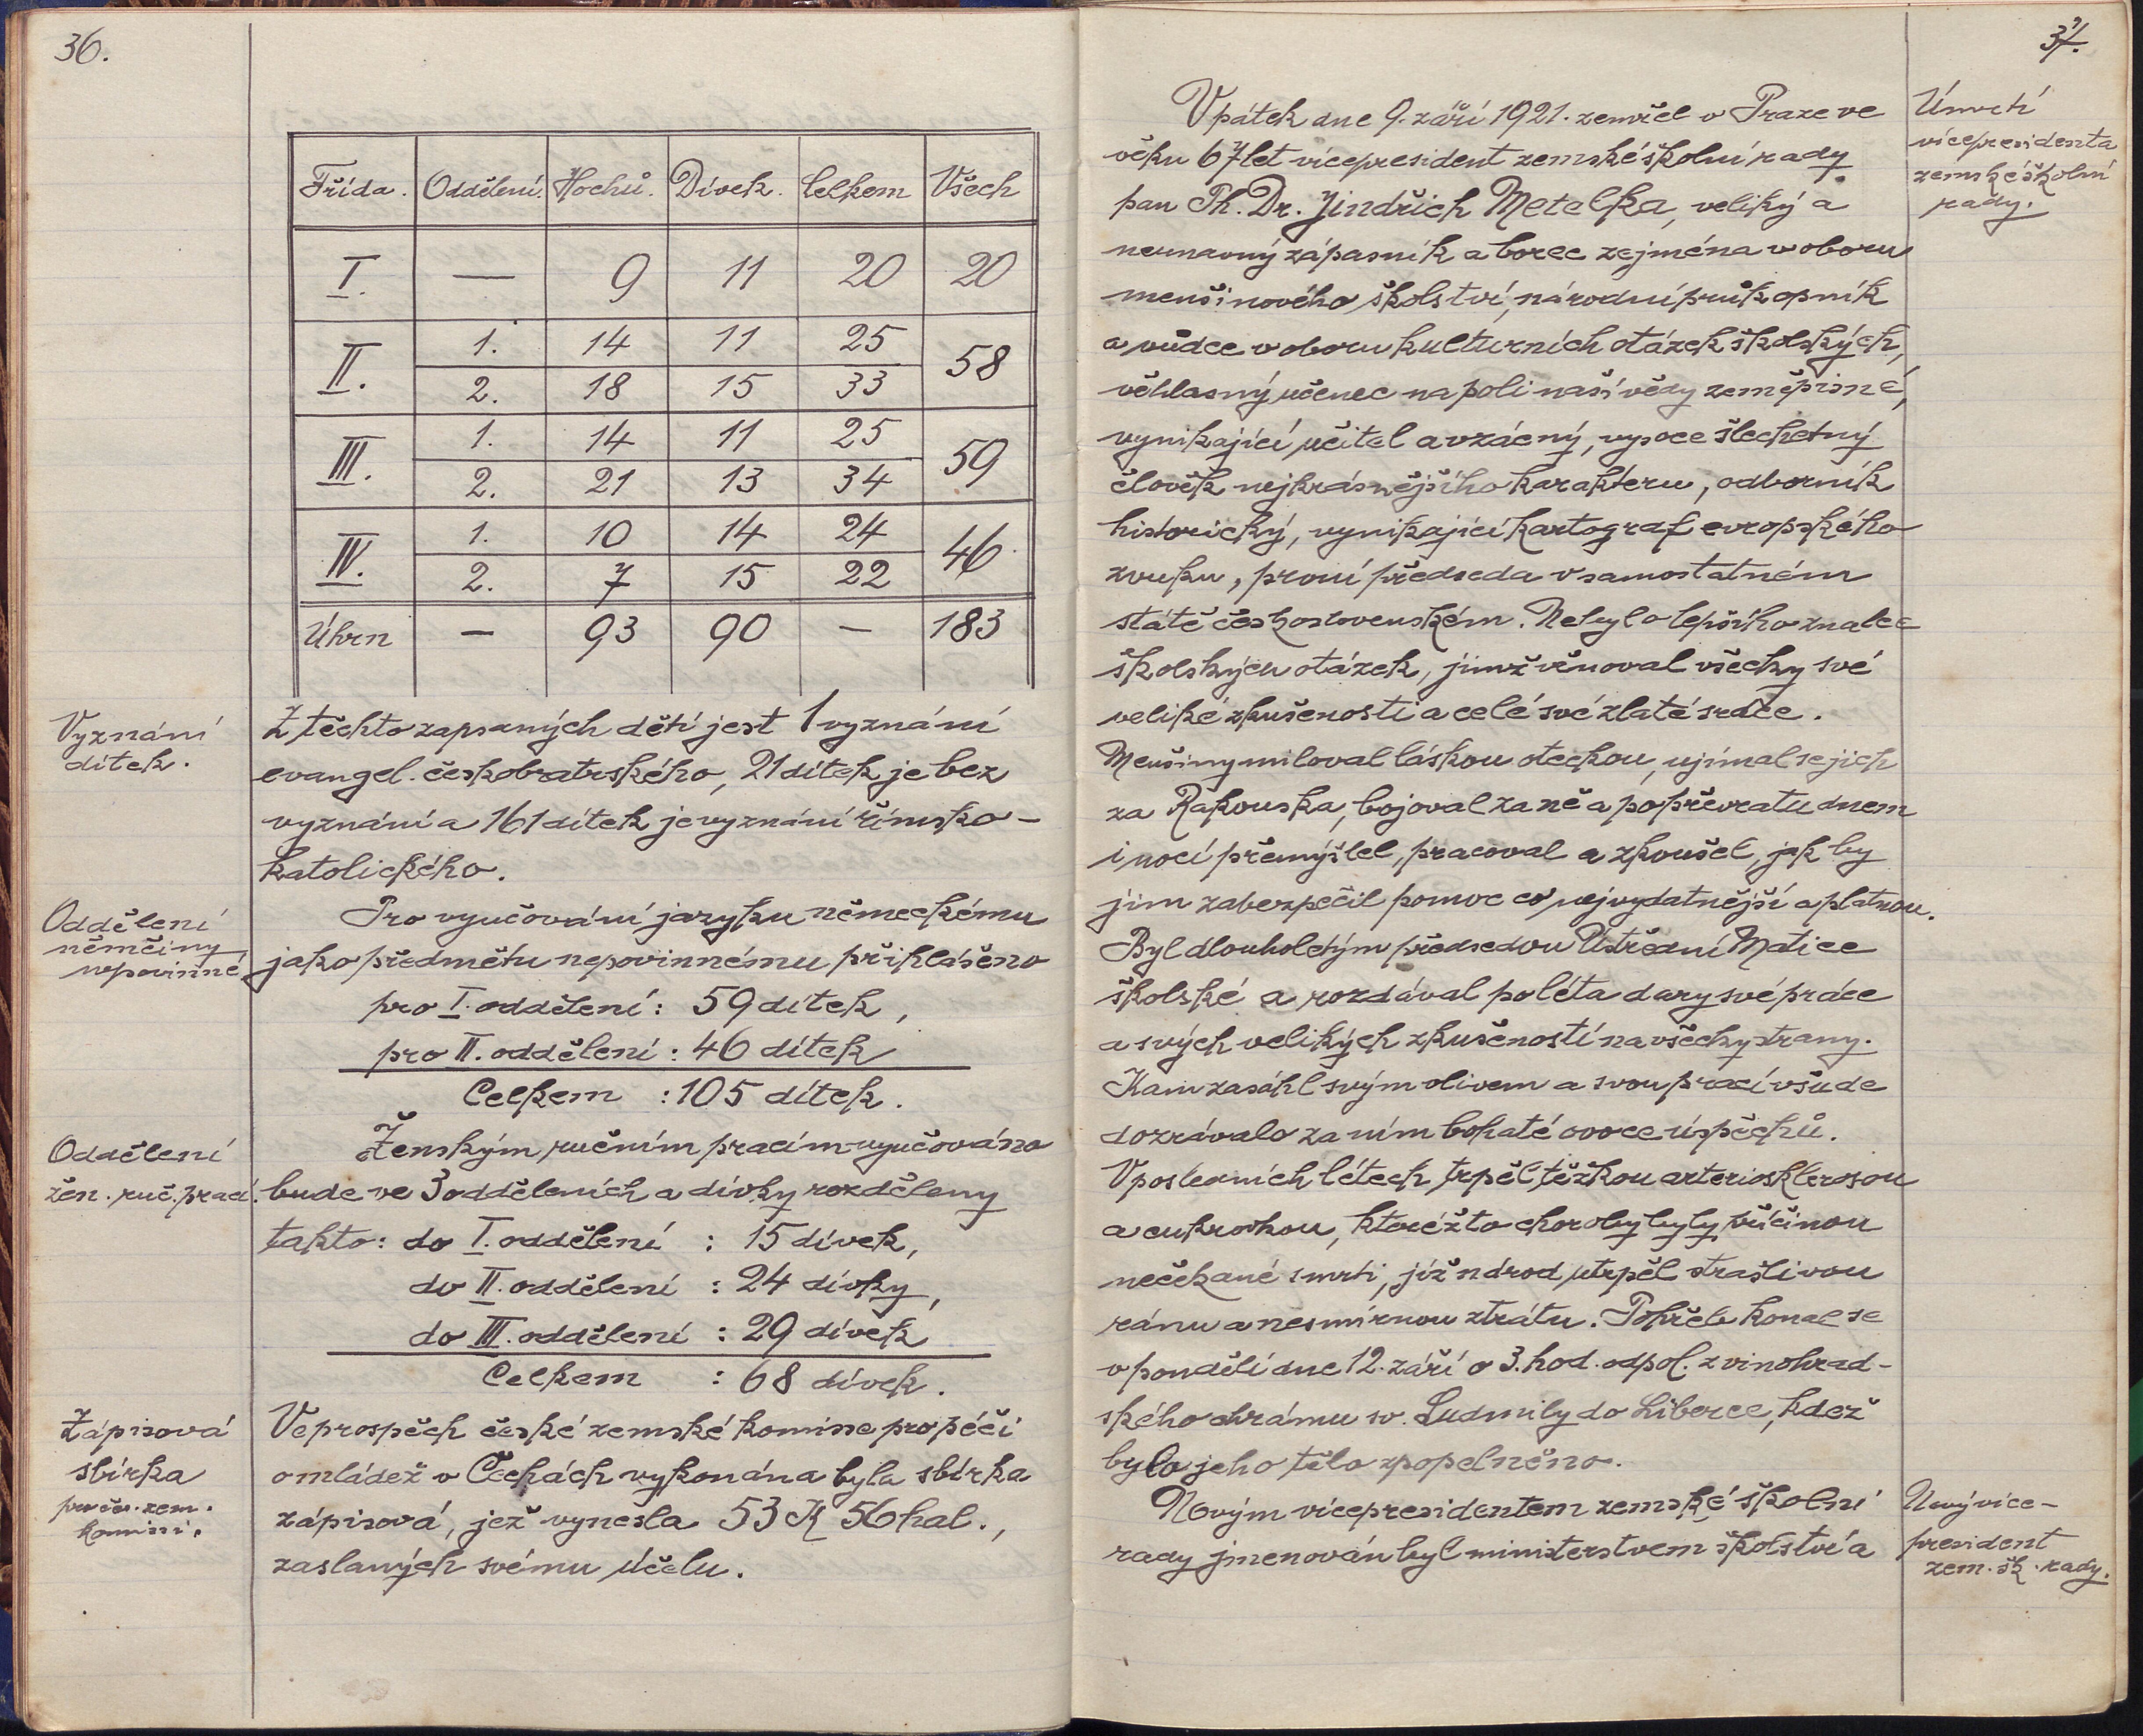 36.
Třída. Oddělení. Hochů. Dívek. Celkem Všech
I. — 9 11 20 20
II. 1. 14 11 25 58
2. 18 15 33
III. 1. 14 11 25 59
2. 21 13 34
IV. 1. 10 14 24 46
2. 7 15 22
Úhrn — 93 90 — 183
Vyznání
dítek.
Z těchto zapsaných dětí jest 1 vyznání
evangel. českobratrského, 21 dítek je bez
vyznání a 161 dítek je vyznání římsko-
katolického.
Oddělení
němčiny
nepovinné
Pro vyučování jazyku německému
jako předmětu nepovinnému přihlášeno
pro I. oddělení: 59 dítek,
pro II. oddělení: 46 dítek
Celkem : 105 dítek.
Oddělení
žen. ruč. prací.
Ženským ručním pracím vyučováno
bude ve 3 odděleních a dívky rozděleny
takto: do I. oddělení : 15 dívek,
do II. oddělení : 24 dívky,
do III. oddělení : 29 dívek
Celkem : 68 dívek.
Zápisová
sbírka
pro čes. zem.
komissi.
Ve prospěch české zemské komisse pro péči
o mládež v Čechách vykonána byla sbírka
zápisová, jež vynesla 53 K 56 hal.,
zaslaných svému účelu.
37.
Úmrtí
vícepresidenta
zemské školní
rady.
V pátek dne 9. září 1921. zemřel v Praze ve
věku 67 let vícepresident zemské školní rady
pan Ph. Dr. Jindřich Metelka, veliký a
neunavný zápasník a borec zejména v oboru
menšinového školství, národní průkopník
a vůdce v oboru kulturních otázek školských,
věhlasný učenec na poli naší vědy zeměpisné,
vynikající učitel a vzácný, vysoce šlechetný
člověk nejkrásnějšího karakteru, odborník
historický, vynikající kartograf evropského
zvuku, první předseda v samostatném
státě československém. Nebylo lepšího znalce
školských otázek, jimž věnoval všecky své
veliké zkušenosti a celé své zlaté srdce.
Menšiny miloval láskou otcckou, ujímal se jich
za Rakouska, bojoval za ně a po převratu dnem
i nocí přemýšlel, pracoval a zkoušel, jak by
jim zabezpečil pomoc co nejvydatnější a platnou.
Byl dlouholetým předsedou Ústřední Matice
školské a rozdával po léta dary své práce
a svých velikých zkušeností na všecky strany.
Kam zasáhl svým vlivem a svou prací všude
dozrávalo za ním bohaté ovoce úspěchů.
V posledních létech trpěl těžkou arteriosklerosou
a cukrovkou, kteréžto choroby byly příčinou
nečekané smrti, jíž národ utrpěl strašlivou
ránu a nesmírnou ztrátu. Pohřeb konal se
v pondělí dne 12. září o 3. hod. odpol. z vinohrad-
ského chrámu sv. Ludmily do Liberce, kdež
bylo jeho tělo zpopelněno.
Nový více-
president
zem. šk. rady.
Novým vícepresidentem zemské školní
rady jmenován byl ministerstvem školství a